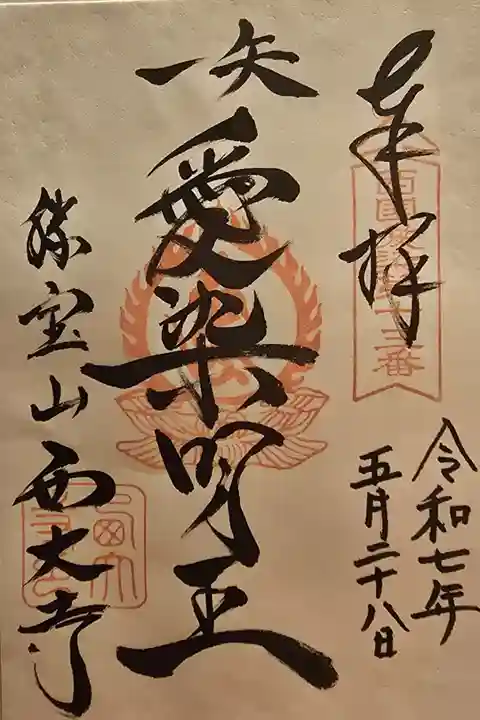 奉拝
令和七年
五月二十八日
一矢
愛染明王
勝宝山西大寺